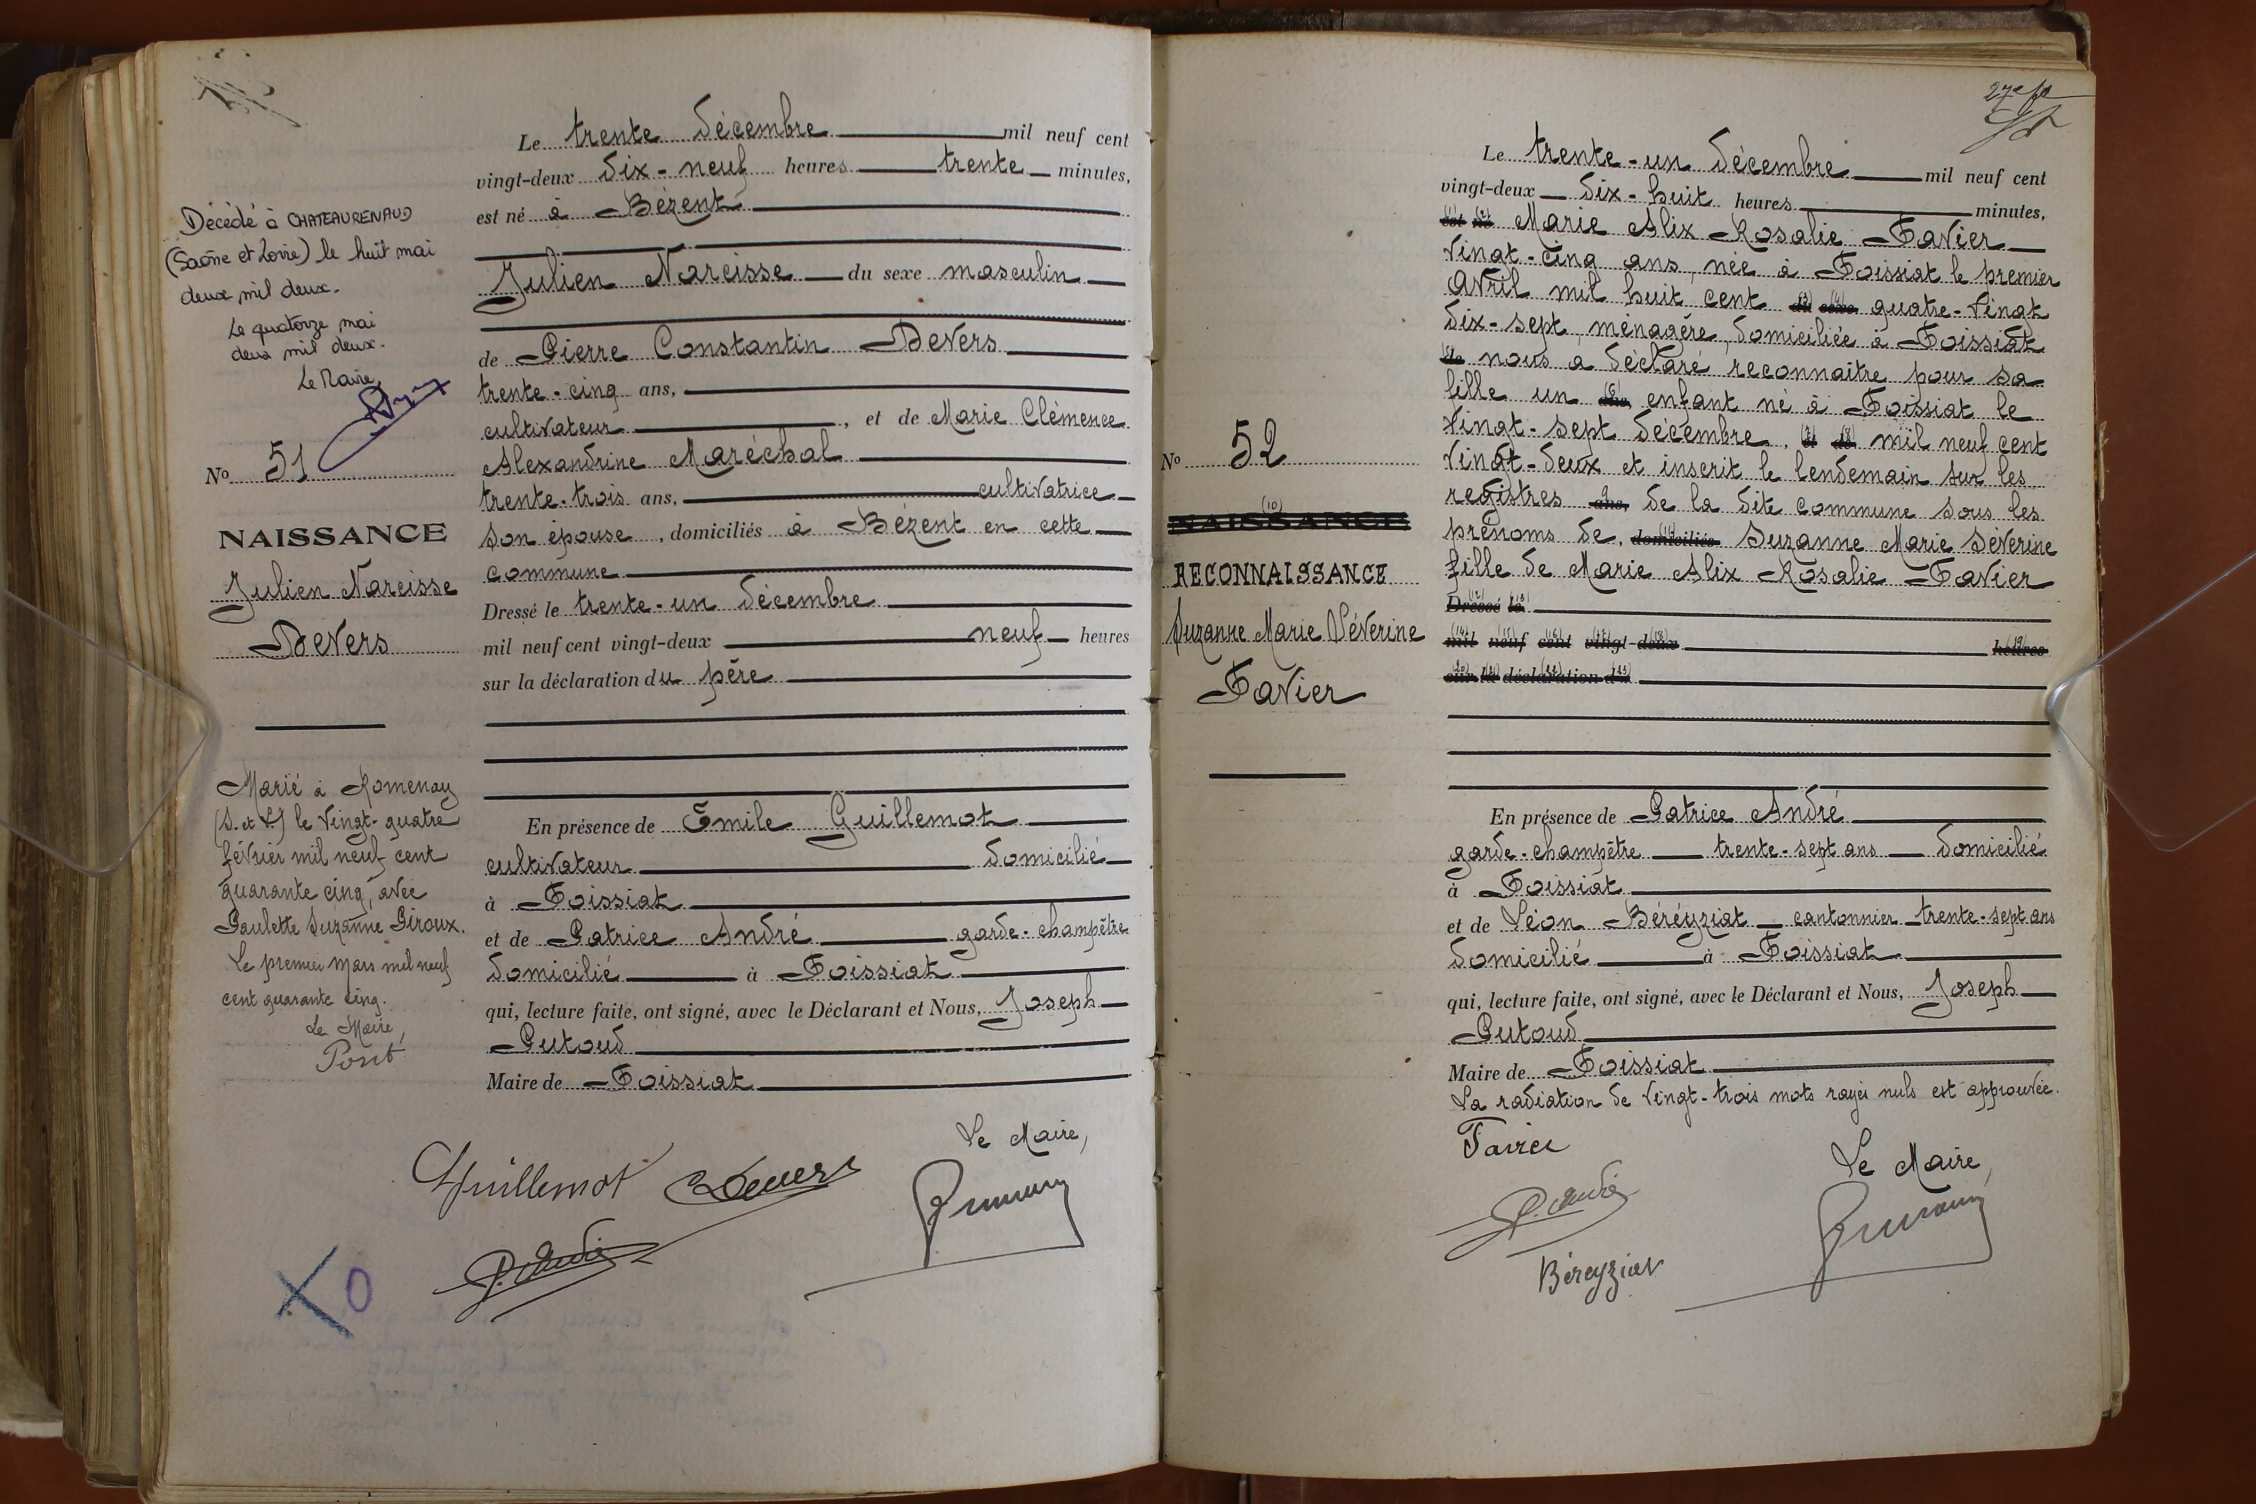 Décédé à CHATEAURENAUD
(Saône et Loire) le huit mai
deux mil deux.
Le quatorze mai
deux mil deux.
Le Maire,
No 51
NAISSANCE
Julien Narcisse
Devers
Marié à Romenay
(S. et L.) le vingt-quatre
février mil neuf cent
quarante cinq, avec
Paulette Suzanne Giroux.
Le premier mars mil neuf
cent quarante cinq.
Le Maire,
Pont
Le trente décembre mil neuf cent
vingt-deux dix-neuf heures trente minutes,
est né à Bézent
Julien Narcisse du sexe masculin
de Pierre Constantin Devers
trente-cinq ans,
cultivateur, et de Marie Clémence
Alexandrine Maréchal
trente-trois ans, cultivatrice
son épouse, domiciliés à Bézent en cette
commune
Dressé le trente-un décembre
mil neuf cent vingt-deux neuf heures
sur la déclaration du père
En présence de Emile Guillemot
cultivateur domicilié
à Foissiat
et de Patrice André garde-champêtre
domicilié à Foissiat
qui, lecture faite, ont signé, avec le Déclarant et Nous, Joseph
Putoud
Maire de Foissiat
Le Maire,
Guillemot Devers
P. André
X O
27e fo
No 52
(10)
NAISSANCE
RECONNAISSANCE
Suzanne Marie Séverine
Favier
Le trente-un décembre mil neuf cent
vingt-deux dix-huit heures minutes,
est né Marie Alix Rosalie Favier
vingt-cinq ans, née à Foissiat le premier
avril mil huit cent du sexe quatre-vingt
dix-sept, ménagère, domiciliée à Foissiat
de nous a déclaré reconnaitre pour sa
fille un ans, enfant né à Foissiat le
vingt-sept décembre, et de mil neuf cent
vingt-deux et inscrit le lendemain sur les
registres ans, de la dite commune sous les
prénoms de, domiciliés Suzanne Marie Séverine
fille de Marie Alix Rosalie Favier
Dressé le
mil neuf cent vingt-deux heures
sur la déclaration d
En présence de Patrice André
garde-champêtre trente-sept ans domicilié
à Foissiat
et de Léon Béréyziat cantonnier trente-sept ans
domicilié à Foissiat
qui, lecture faite, ont signé, avec le Déclarant et Nous, Joseph
Putoud
Maire de Foissiat
La radiation de vingt-trois mots rayés nuls est approuvée.
Favier
Le Maire,
P. André
Béreyziat